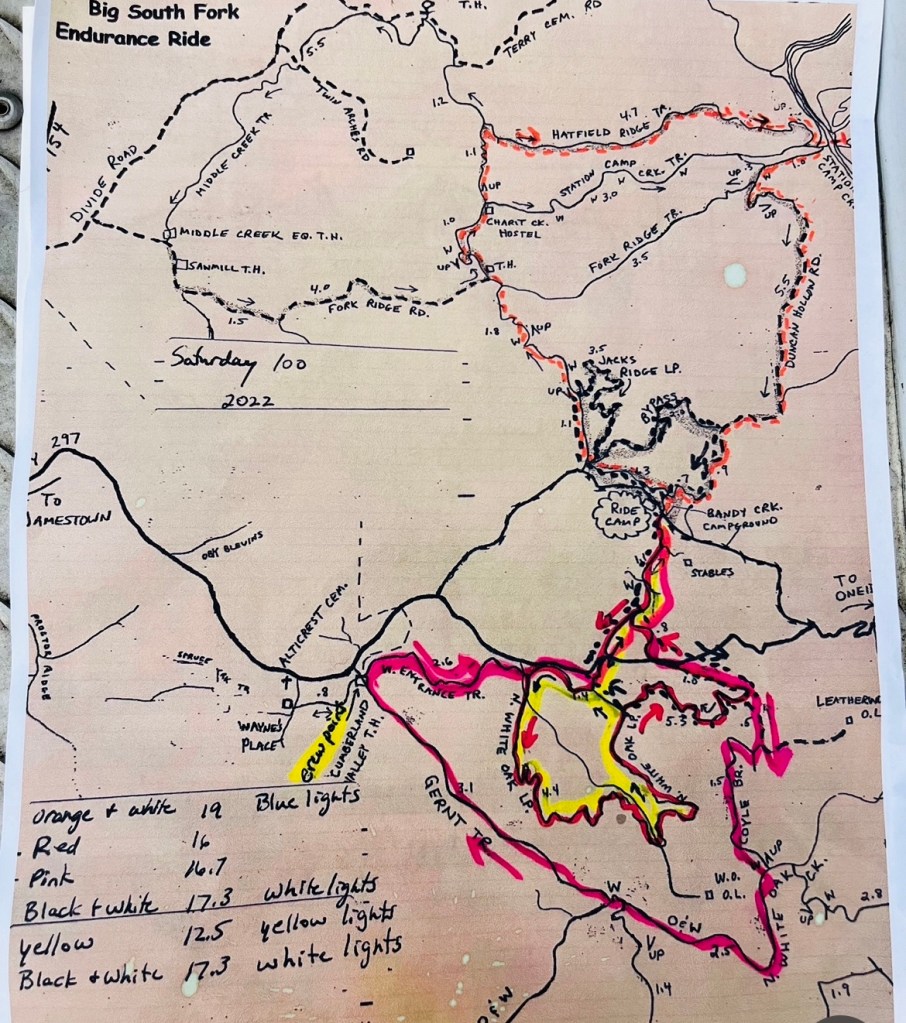 Big South Fork
Endurance Ride
T.H.
TERRY CEM. RD
5.5
154
TWIN ARCHES RD
1.2
4.7 TR.
HATFIELD RIDGE
UP
DIVIDE ROAD
MIDDLE CREEK TR
1.1
STATION CAMP CRK. TR.
W 3.0 W W
UP
W 1.0
STATION CAMP CR
UP
CHARIT CK. HOSTEL
1.0
W
UP
UP
MIDDLE CREEK EQ. T.H.
SAWMILL T.H.
T.H.
FORK RIDGE TR.
3.5
4.0
FORK RIDGE RD.
1.5
5.5
DUNCAN HOLLOW RD.
1.8
UP
W
Saturday 100
2022
3.5
JACKS
RIDGE LP.
W
UP
BYPASS
1.1
.3
.7
.9
297
TO
JAMESTOWN
RIDE
CAMP
BANDY CRK.
CAMPGROUND
OBY BLEVINS
STABLES
TO
ONEID
ALTICREST CEM.
.8
PROCTOR RIDGE
SPRUCE
TR
2.0
W. ENTRANCE TR.
1.0
LEATHERW
O.L.
.8
WAYNE'S
PLACE
Crew point
CUMBERLAND
VALLEY T.H.
N. WHITE OAK LP.
4.4
5.3
N. WHITE OAK LP.
1.5
COYLE BR.
3.1
GERNT TR.
UP
W.O.
O.L.
N. WHITE OAK CK.
UP
W
2.8
Orange + white 19 Blue lights
Red 16
Pink 16.7
Black + white 17.3 white lights
yellow 12.5 yellow lights
Black + white 17.3 white lights
W
O&W
2.5
UP
1.4
O&W
1.9